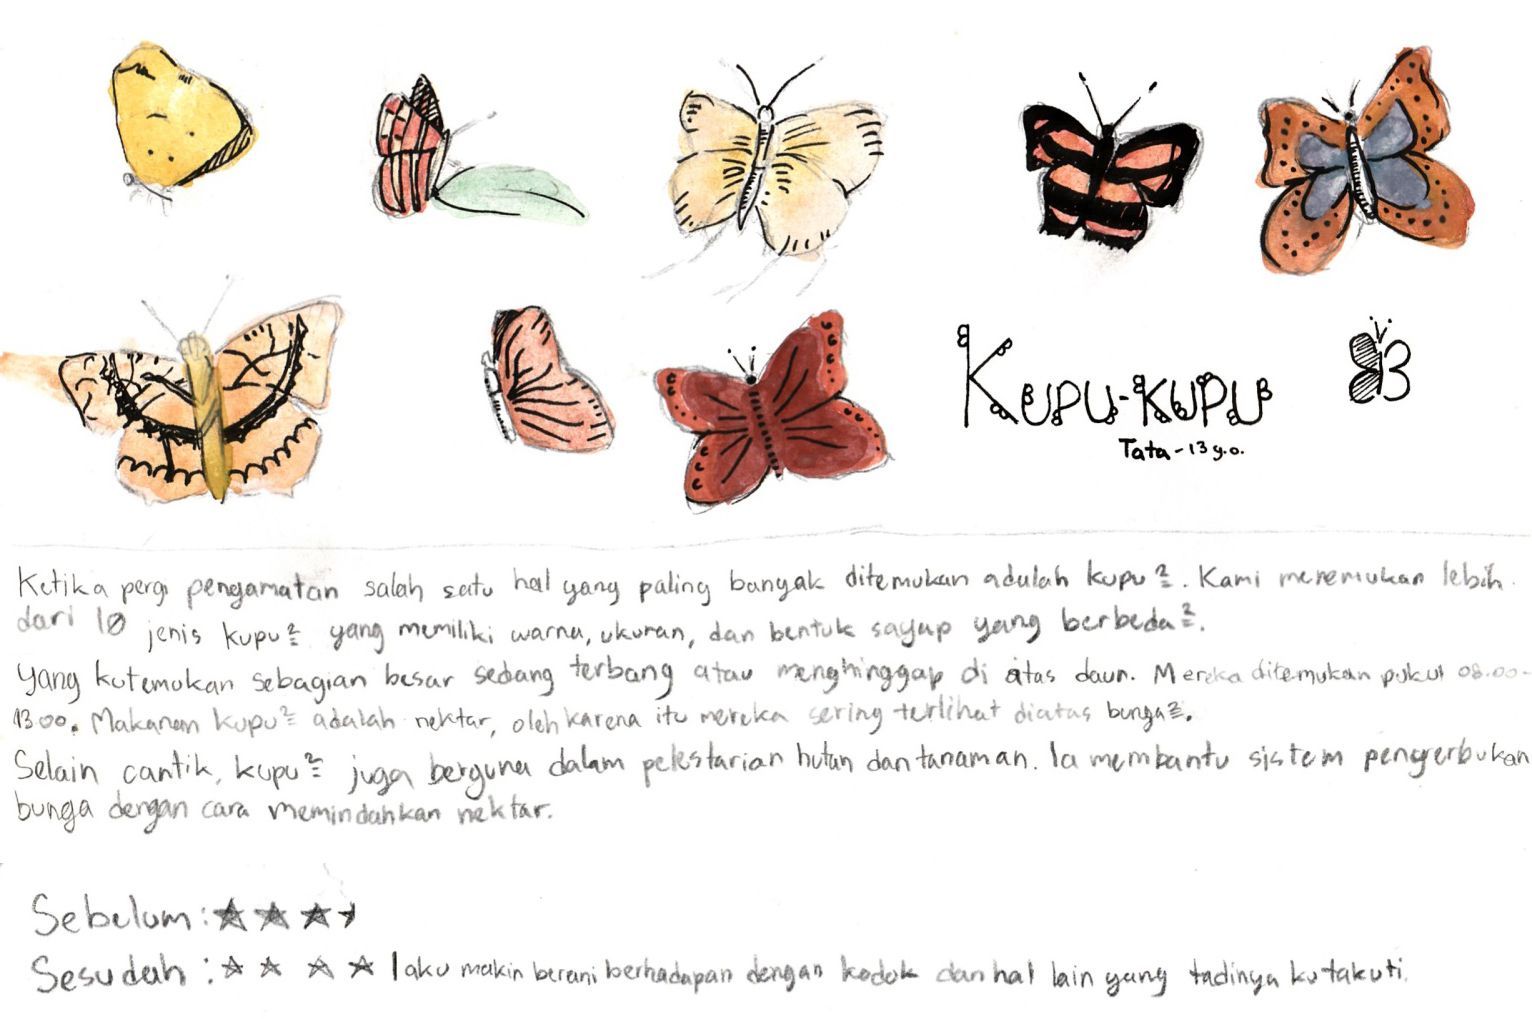 Kupu-Kupu
B
Tata - 13 y.o.
Ketika pergi pengamatan salah satu hal yang paling banyak ditemukan adalah kupu². Kami menemukan lebih
dari 10 jenis kupu² yang memiliki warna, ukuran, dan bentuk sayap yang berbeda².
Yang kutemukan sebagian besar sedang terbang atau menghinggap di atas daun. Mereka ditemukan pukul 08.00-
13.00. Makanan kupu² adalah nektar, oleh karena itu mereka sering terlihat diatas bunga².
Selain cantik, kupu² juga berguna dalam pelestarian hutan dan tanaman. Ia membantu sistem pengerbukan
bunga dengan cara memindahkan nektar.
Sebelum :
Sesudah : | aku makin berani berhadapan dengan kodok dan hal lain yang tadinya kutakuti.